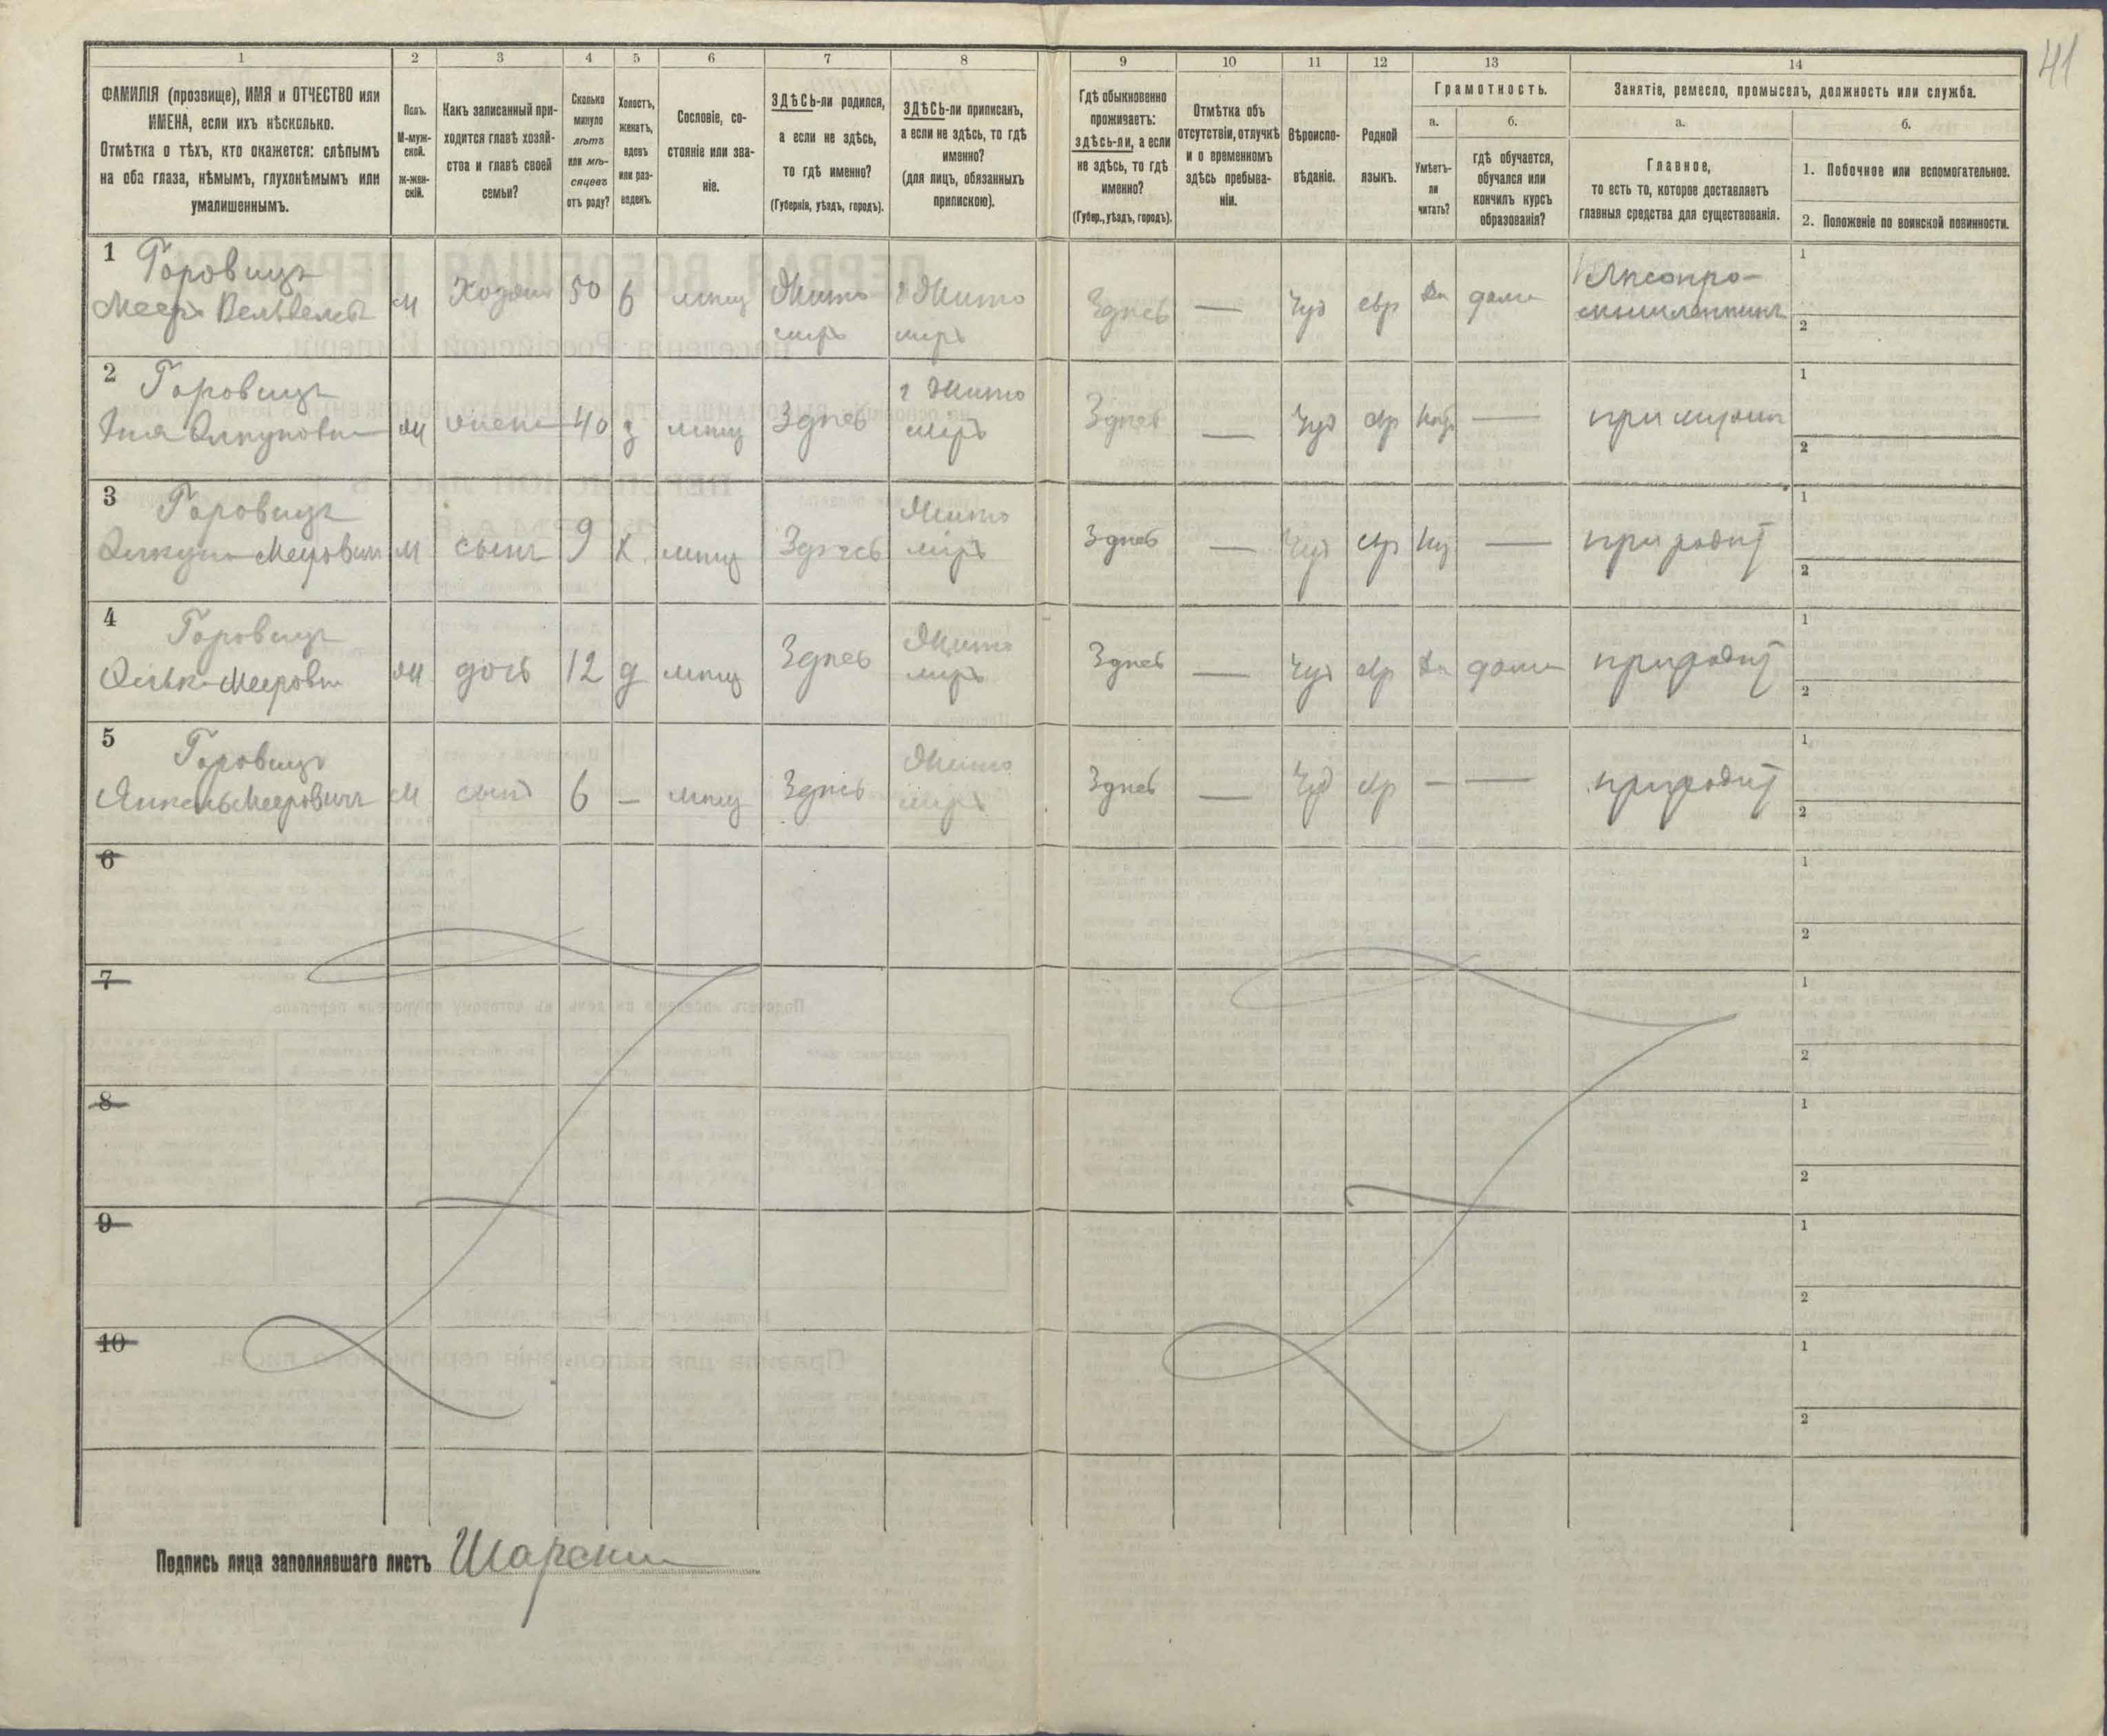 41
1
2
3
4
5
6
7
8
9
10
11
12
13
14
ФАМИЛІЯ (прозвище), ИМЯ и ОТЧЕСТВО или
ИМЕНА, если ихъ нѣсколько.
Отмѣтка о тѣхъ, кто окажется: слѣпымъ
на оба глаза, нѣмымъ, глухонѣмымъ или
умалишеннымъ.
Полъ.
М-муж-
ской.
ж-жен-
скій.
Какъ записанный при-
ходится главѣ хозяй-
ства и главѣ своей
семьи?
Сколько
минуло
лѣтъ
или мѣ-
сяцевъ
отъ роду?
Холостъ,
женатъ,
вдовъ
или раз-
веденъ.
Сословіе, со-
стояніе или зва-
ніе.
ЗДѢСЬ-ли родился,
а если не здѣсь,
то гдѣ именно?
(Губернія, уѣздъ, городъ).
ЗДѢСЬ-ли приписанъ,
а если не здѣсь, то гдѣ
именно?
(для лицъ, обязанныхъ
припискою).
Гдѣ обыкновенно
проживаетъ:
здѣсь-ли, а если
не здѣсь, то гдѣ
именно?
(Губер., уѣздъ, городъ).
Отмѣтка объ
отсутствіи, отлучкѣ
и о временномъ
здѣсь пребыва-
ніи.
Вѣроиспо-
вѣданіе.
Родной
языкъ.
Грамотность.
а.
Умѣетъ-
ли
читать?
б.
гдѣ обучается,
обучался или
кончилъ курсъ
образованія?
Занятіе, ремесло, промыселъ, должность или служба.
а.
Главное,
то есть то, которое доставляетъ
главныя средства для существованія.
б.
1. Побочное или вспомогательное.
2. Положеніе по воинской повинности.
1 Горовицъ
Мееръ Вельвелевъ
М
Хозяин
50
в
мещ
Жито
миръ
г Жито
миръ
Здѣсь
—
Іуд
евр
Да
дома
Лѣсопро-
мышленникъ
1
2
2 Горовицъ
Ж
жена
40
з
мещ
Здѣсь
г Жито
миръ
Здѣсь
—
Іуд
евр
—
при мужѣ
1
2
3 Горовицъ
Меерович
М
сынъ
9
х
мещ
Здѣсь
Жито
миръ
Здѣсь
—
Іуд
евр
—
при родит
1
2
4 Горовицъ
Мееровна
Ж
дочь
12
д
мещ
Здѣсь
Жито
миръ
Здѣсь
—
Іуд
евр
Да
дома
при родит
1
2
5 Горовицъ
Янкель Мееровичъ
М
сынъ
6
—
мещ
Здѣсь
Жито
миръ
Здѣсь
—
Іуд
евр
—
—
при родит
1
2
6
1
2
7
1
2
8
1
2
9
1
2
10
1
2
Подпись лица заполнявшаго листъ